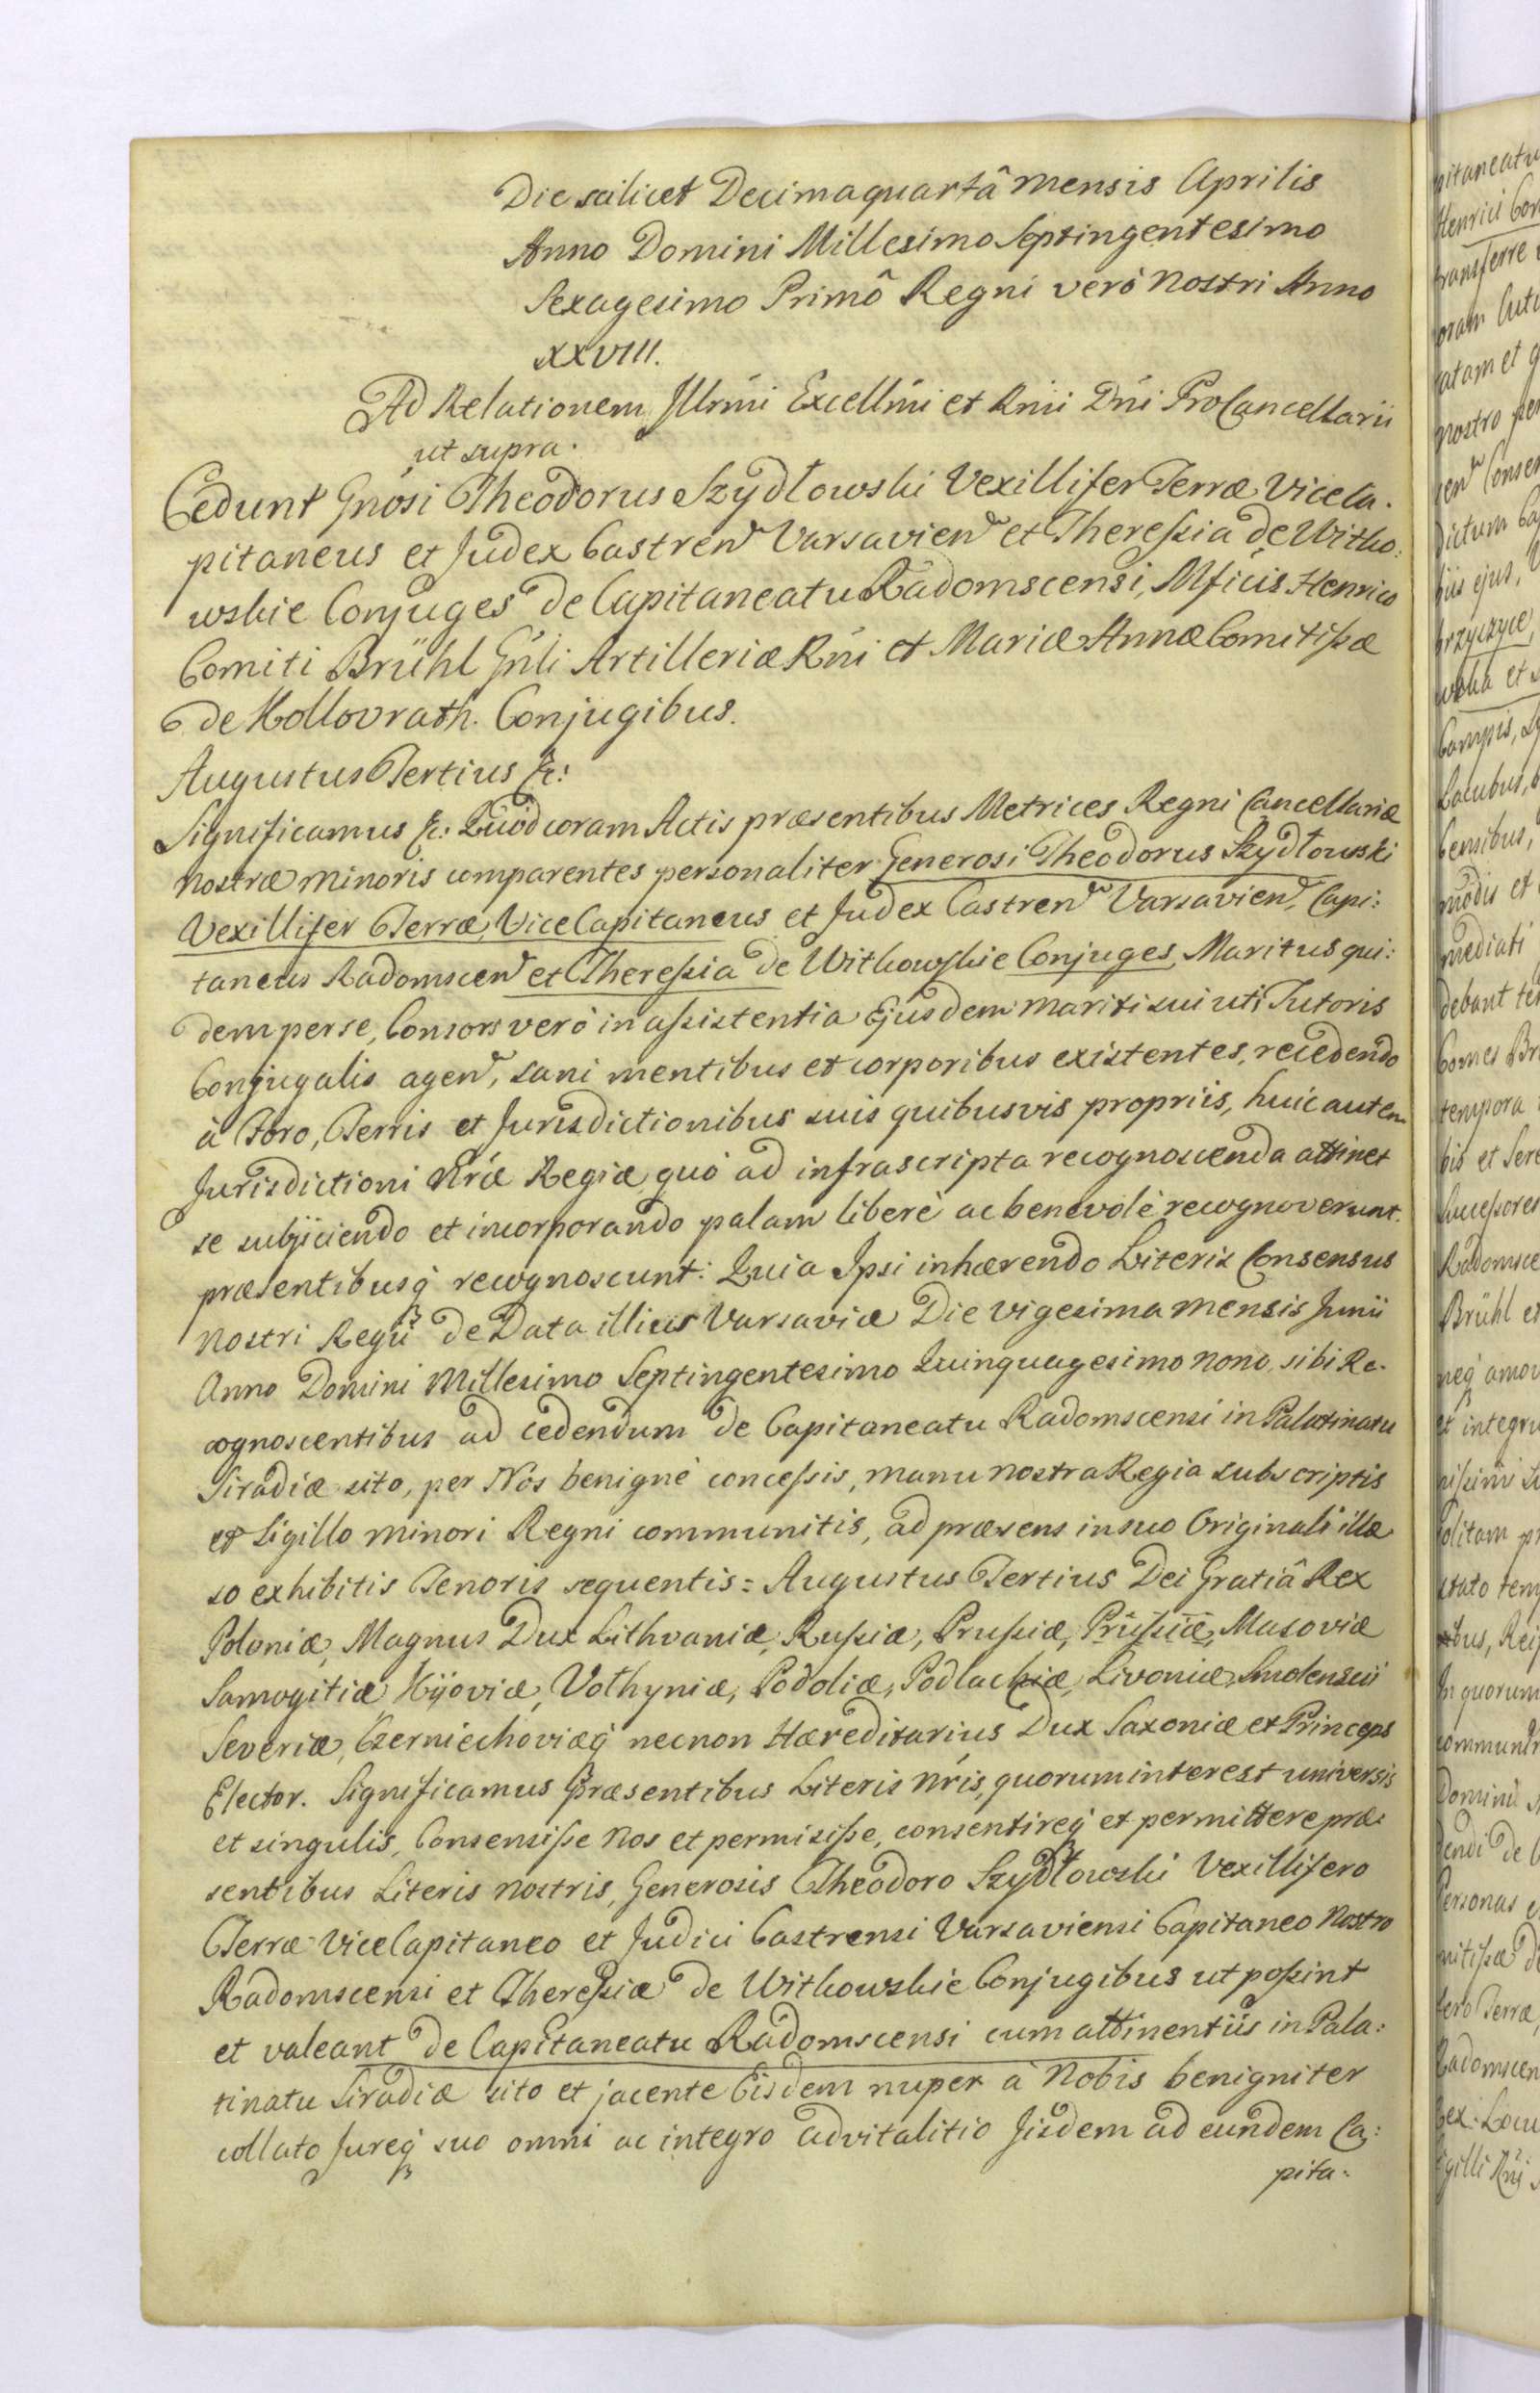 Die scilicet Decimaquartâ mensis Aprilis
Anno Domini Millesimo Septingentesimo
Sexagesimo Primô Regni verò Nostri Anno
XXVIII.
Ad Relationem Illrmi Excellmi et Rmi Dni ProCancellarii
ut supra.
Cedunt Gnosi Theodorus Szydłowski Vexillifer Terræ Viceca-
pitaneus et Judex Castren Varsavien et Theressia de Witko:
wskie Conjuges de Capitaneatu Radomscensi, Mficis Henrico
Comiti Brühl Gnli Artilleriæ Rni et Mariæ Annæ Comitissæ
de Kollovrath. Conjugibus.
Augustus Tertius &c:
Significamus &c: Quòd coram Actis præsentibus Metrices Regni Cancellariæ
Nostræ minoris comparentes personaliter Generosi Theodorus Szydłowski
Vexillifer Terræ, ViceCapitaneus et Judex Castren Varsavien, Capi:
taneus Radomscen et Theressia de Witkowskie Conjuges, Maritus qui:
dem per se, Consors verò in assistentia Ejusdem mariti sui uti Tutoris
Conjugalis agen, sani mentibus et corporibus existentes, recedendo
à Foro, Terris et Jurisdictionibus suis quibusvis propriis, huic autem
Jurisdictioni Nræ Regiæ quò ad infrascripta recognoscenda attinet
se subjiciendo et incorporando palam liberè ac benevolè recognoverunt.
præsentibusq recognoscunt: Quia Ipsi inhærendo Literis Consensus
Nostri Regii de Data illius Varsaviæ Die vigesima mensis Junii
Anno Domini Millesimo Septingentesimo Quinquagesimo nono, sibi Re-
cognoscentibus ad cedendum de Capitaneatu Radomscensi in Palatinatu
Siradiæ sito, per Nos benignè concessis, manu nostra Regia subscriptis
et Sigillo minori Regni communitis, ad præsens in suo Originali illæ
so exhibitis Tenoris sequentis = Augustus Tertius Dei Gratiâ Rex
Poloniæ, Magnus Dux Lithvaniæ, Russiæ, Prussiæ, Prussiæ, Masoviæ
Samogitiæ Kijoviæ, Volhyniæ, Podoliæ, Podlachiæ, Livoniæ, Smolenscii
Severiæ, Czerniechoviæq necnon Hæreditarius Dux Saxoniæ et Princeps
Elector. Significamus Præsentibus Literis Nris, quorum interest universis
et singulis, Consensisse Nos et permisisse, consentireq et permittere præ:
sentibus Literis nostris, Generosis Theodoro Szydłowski Vexillifero
Terræ ViceCapitaneo et Judici Castrensi Varsaviensi Capitaneo Nostro
Radomscensi et Theressiæ de Witkowskie Conjugibus ut possint
et valeant de Capitaneatu Radomscensi cum attinentiis in Pala:
tinatu Siradiæ sito et jacente Eisdem nuper à Nobis benigniter
collato Jureq suo omni ac integro advitalitio Jisdem ad eundem Ca:
pita-